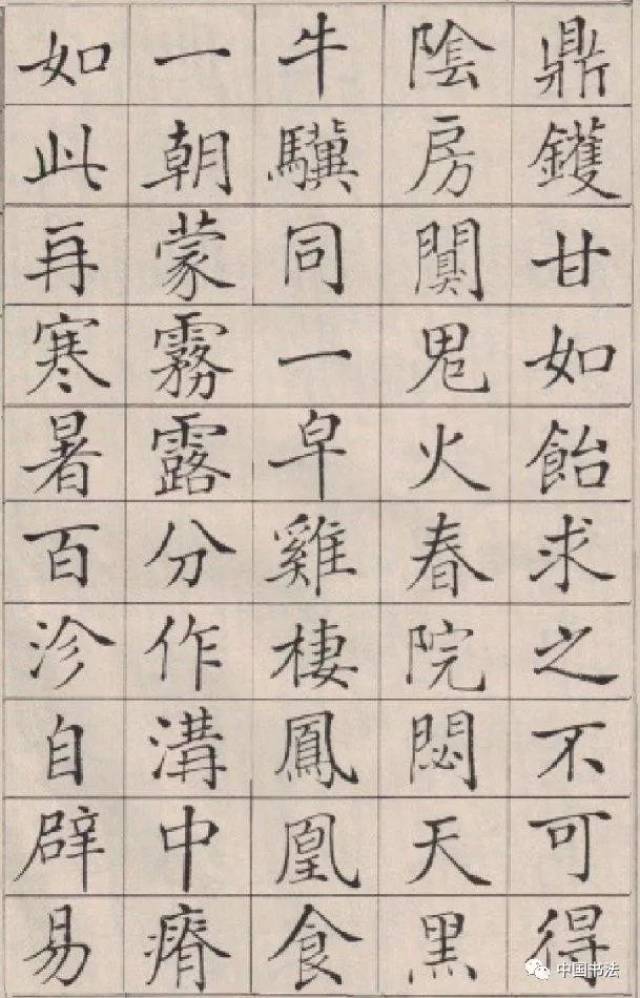 鼎鑊甘如飴求之不可得
陰房闃鬼火春院閟天黑
牛驥同一皁雞棲鳳凰食
一朝蒙霧露分作溝中瘠
如此再寒暑百沴自辟易
中国书法